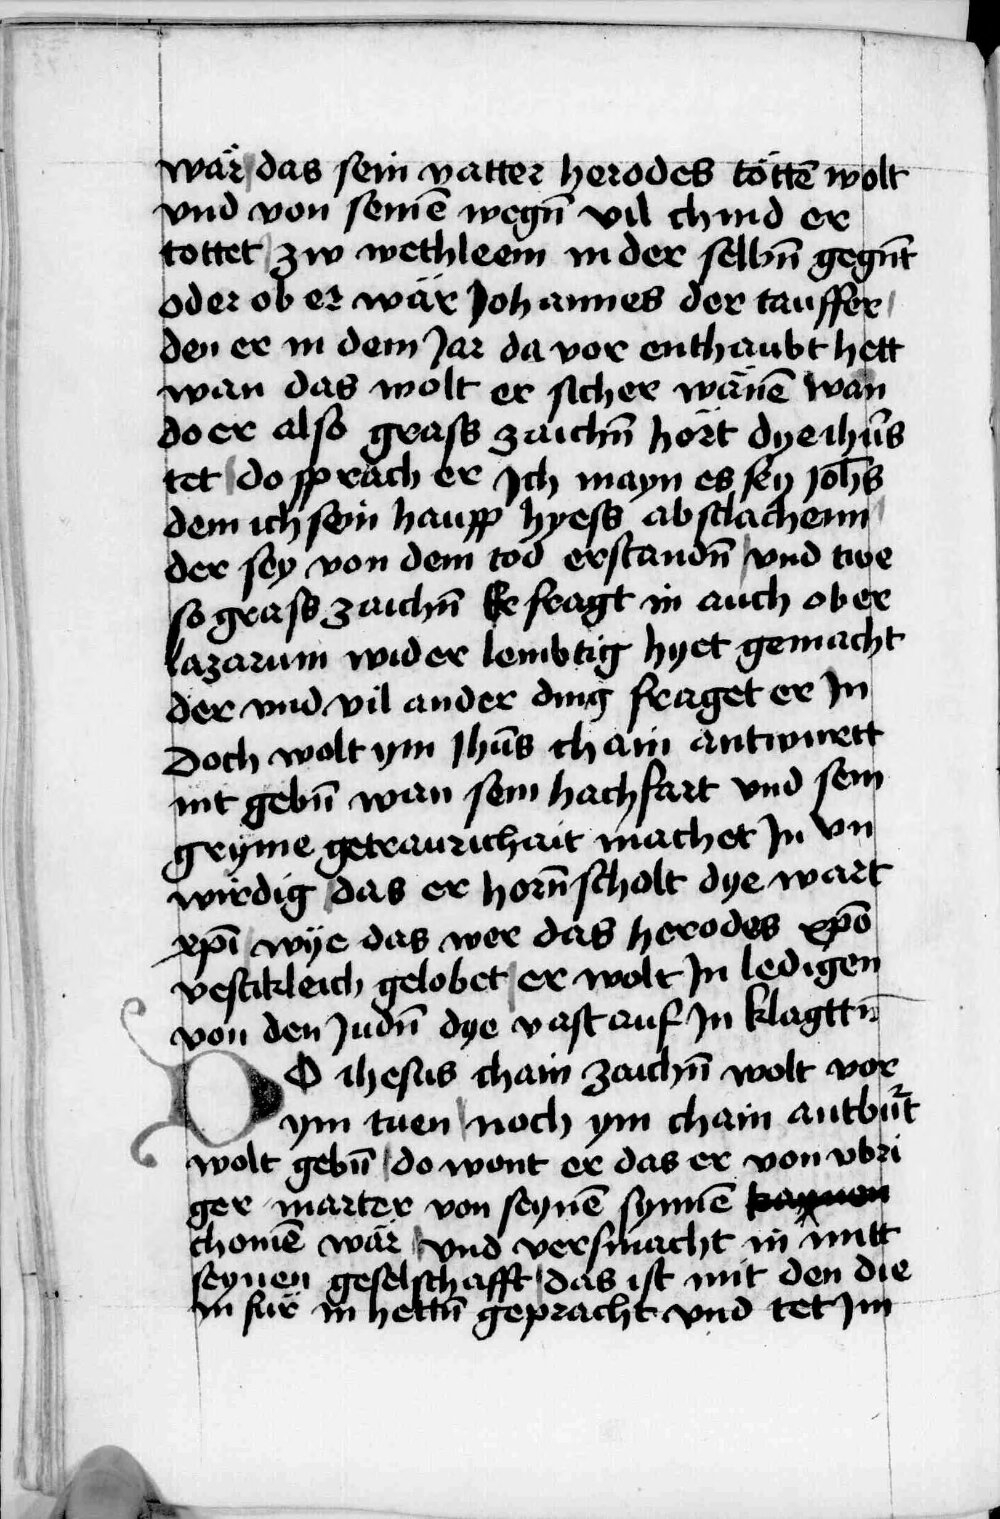 wär das sein vatter herodes töttē wolt
vnd von seinē wegn̄ vil chind er
tottet zw wethleem in der selbn̄ gegn̄t
oder ob er wär Johannes der tauffer
den er in dem Jar da vor enthaubt hett
wan das wolt er sicher wänē wan
do er also grass zaichn̄ hört dye ihūs
tet do sprach er Ich mayn es sey Joh̄s
dem ich sein haupp hyess abslachenn
der sey von dem tod erstandn̄ vnd twe
so grass zaichn̄ Er fragt in auch ob er
lazarum wider lembtig hyet gemacht
der vnd vil ander ding fraget er In
Doch wolt ym Jhūs chain antwurtt
nit gebn̄ wan sein hachfart vnd sein
gryme getraurichait machet In vn
wirdig das er horn̄ scholt dye wart
xp̄i wye das wer das herodes xp̄o
vestikleich gelobet er wolt In ledigen
von den Judn̄ dye vast auf In klagttn̄
DO ihesus chain zaichn̄ wolt vor
ym tuen noch ym chain antbürt
wolt gebn̄ do wont er das er von vbri
ger marter von seynē synnē
chomē wär vnd versmacht in mitt
seynen geselschafft das ist mit den die
in für in hettn̄ gepracht vnd tet Im